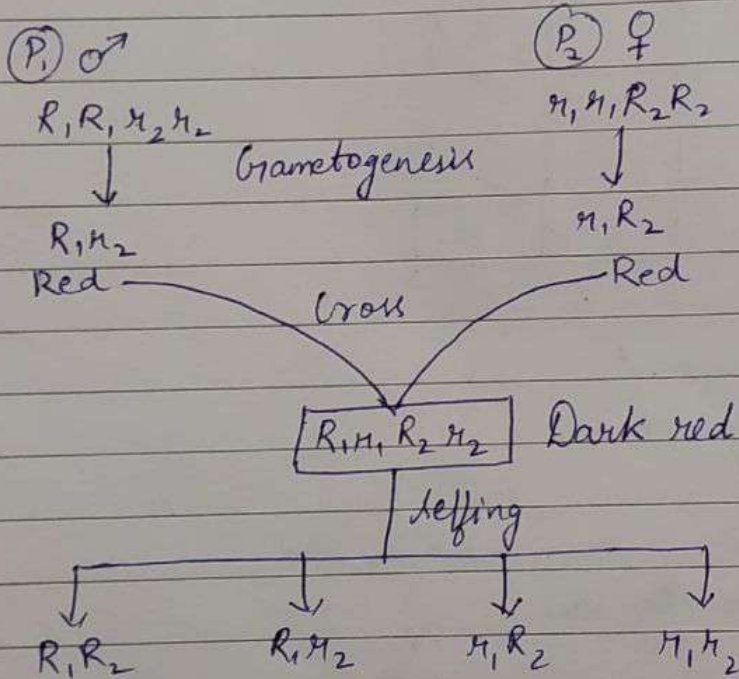 P₁ ♂ P₂ ♀
R₁R₁r₂r₂ r₁r₁R₂R₂
Gametogenesis
R₁r₂ r₁R₂
Red Red
Cross
R₁r₁R₂r₂ Dark red
selfing
R₁R₂ R₁r₂ r₁R₂ r₁r₂